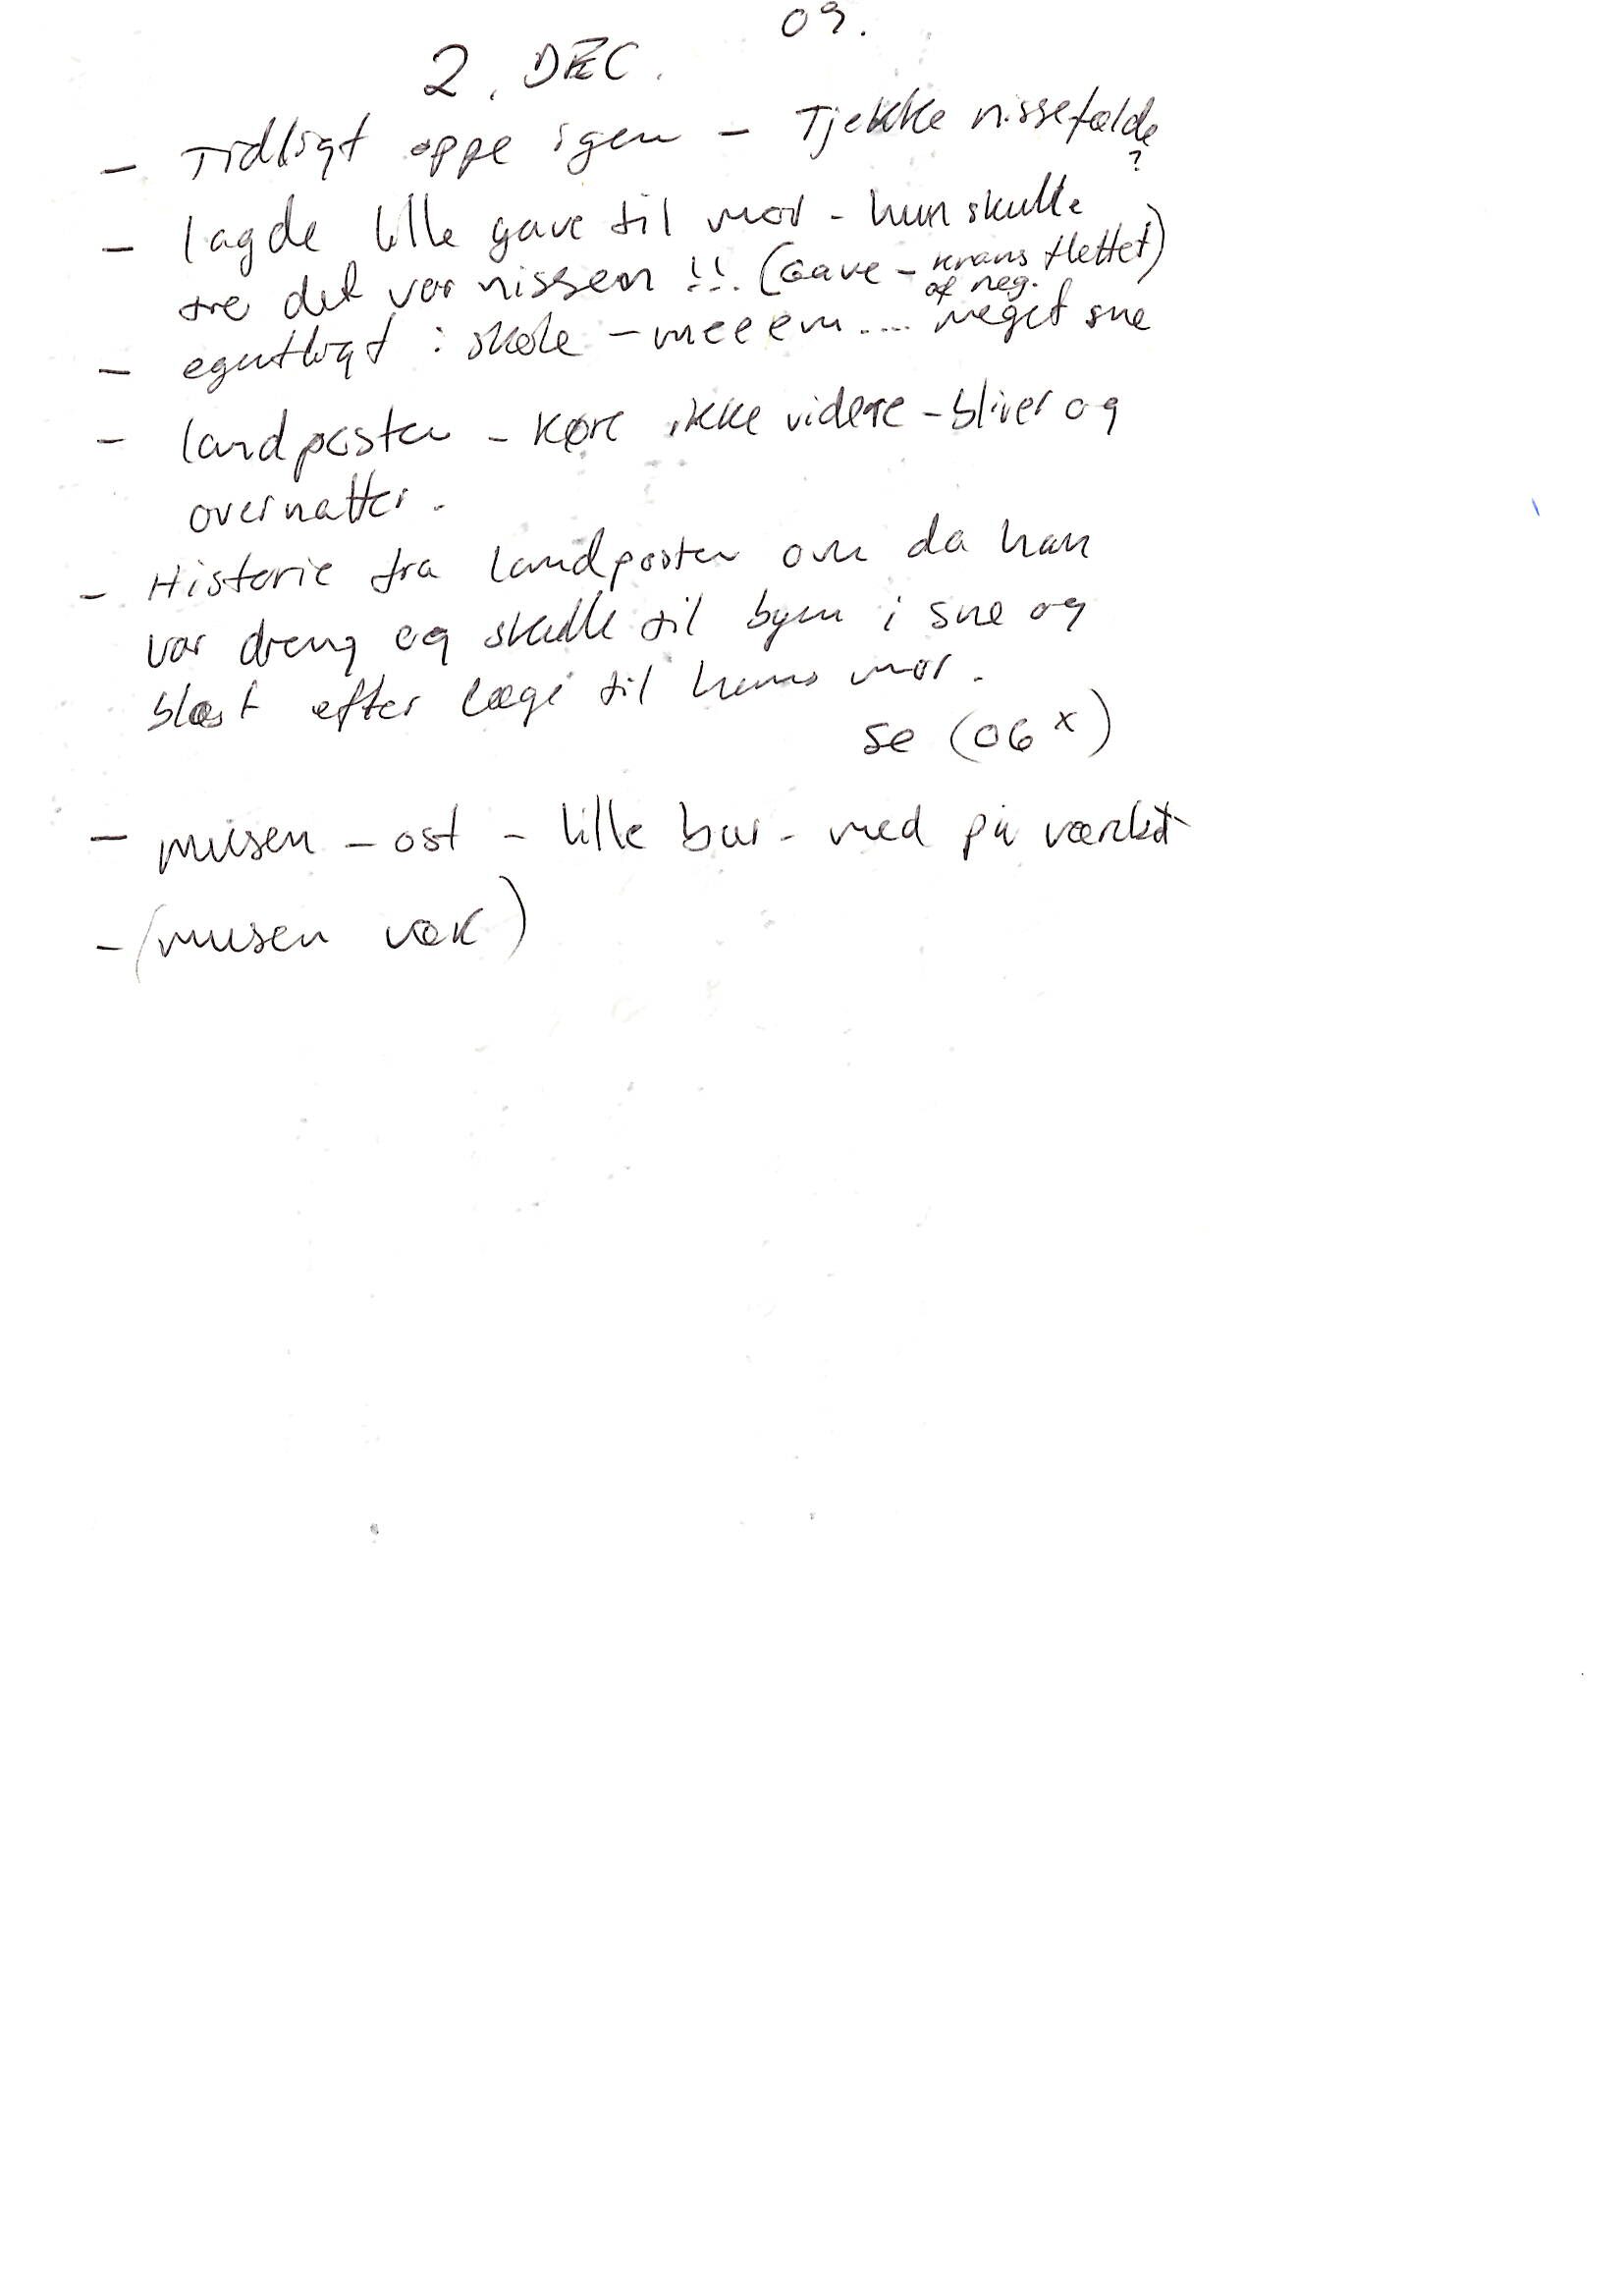 09.
2. DEC.
- Tidligt oppe igen - Tjekke nissefælde
?
- lagde lille gave til mor - hun skulle
tro det var nissen !!! (Gave - krans flettet)
af neg.
- egentligt i skole - meeen.... meget sne
- landposten - køre ikke videre - bliver og
overnatter.
- Historie fra landposten om da han
var dreng og skulle til byen i sne og
blæst efter læge til hans mor.
se (06 x)
- musen - ost - lille bur - med på værkst
- (musen væk)